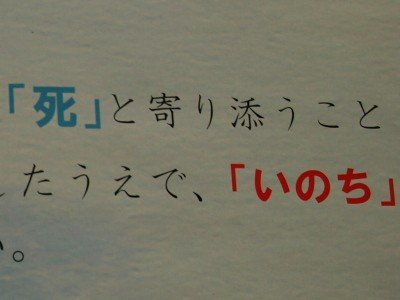 「死」と寄り添うこと
たうえで、「いのち」
。